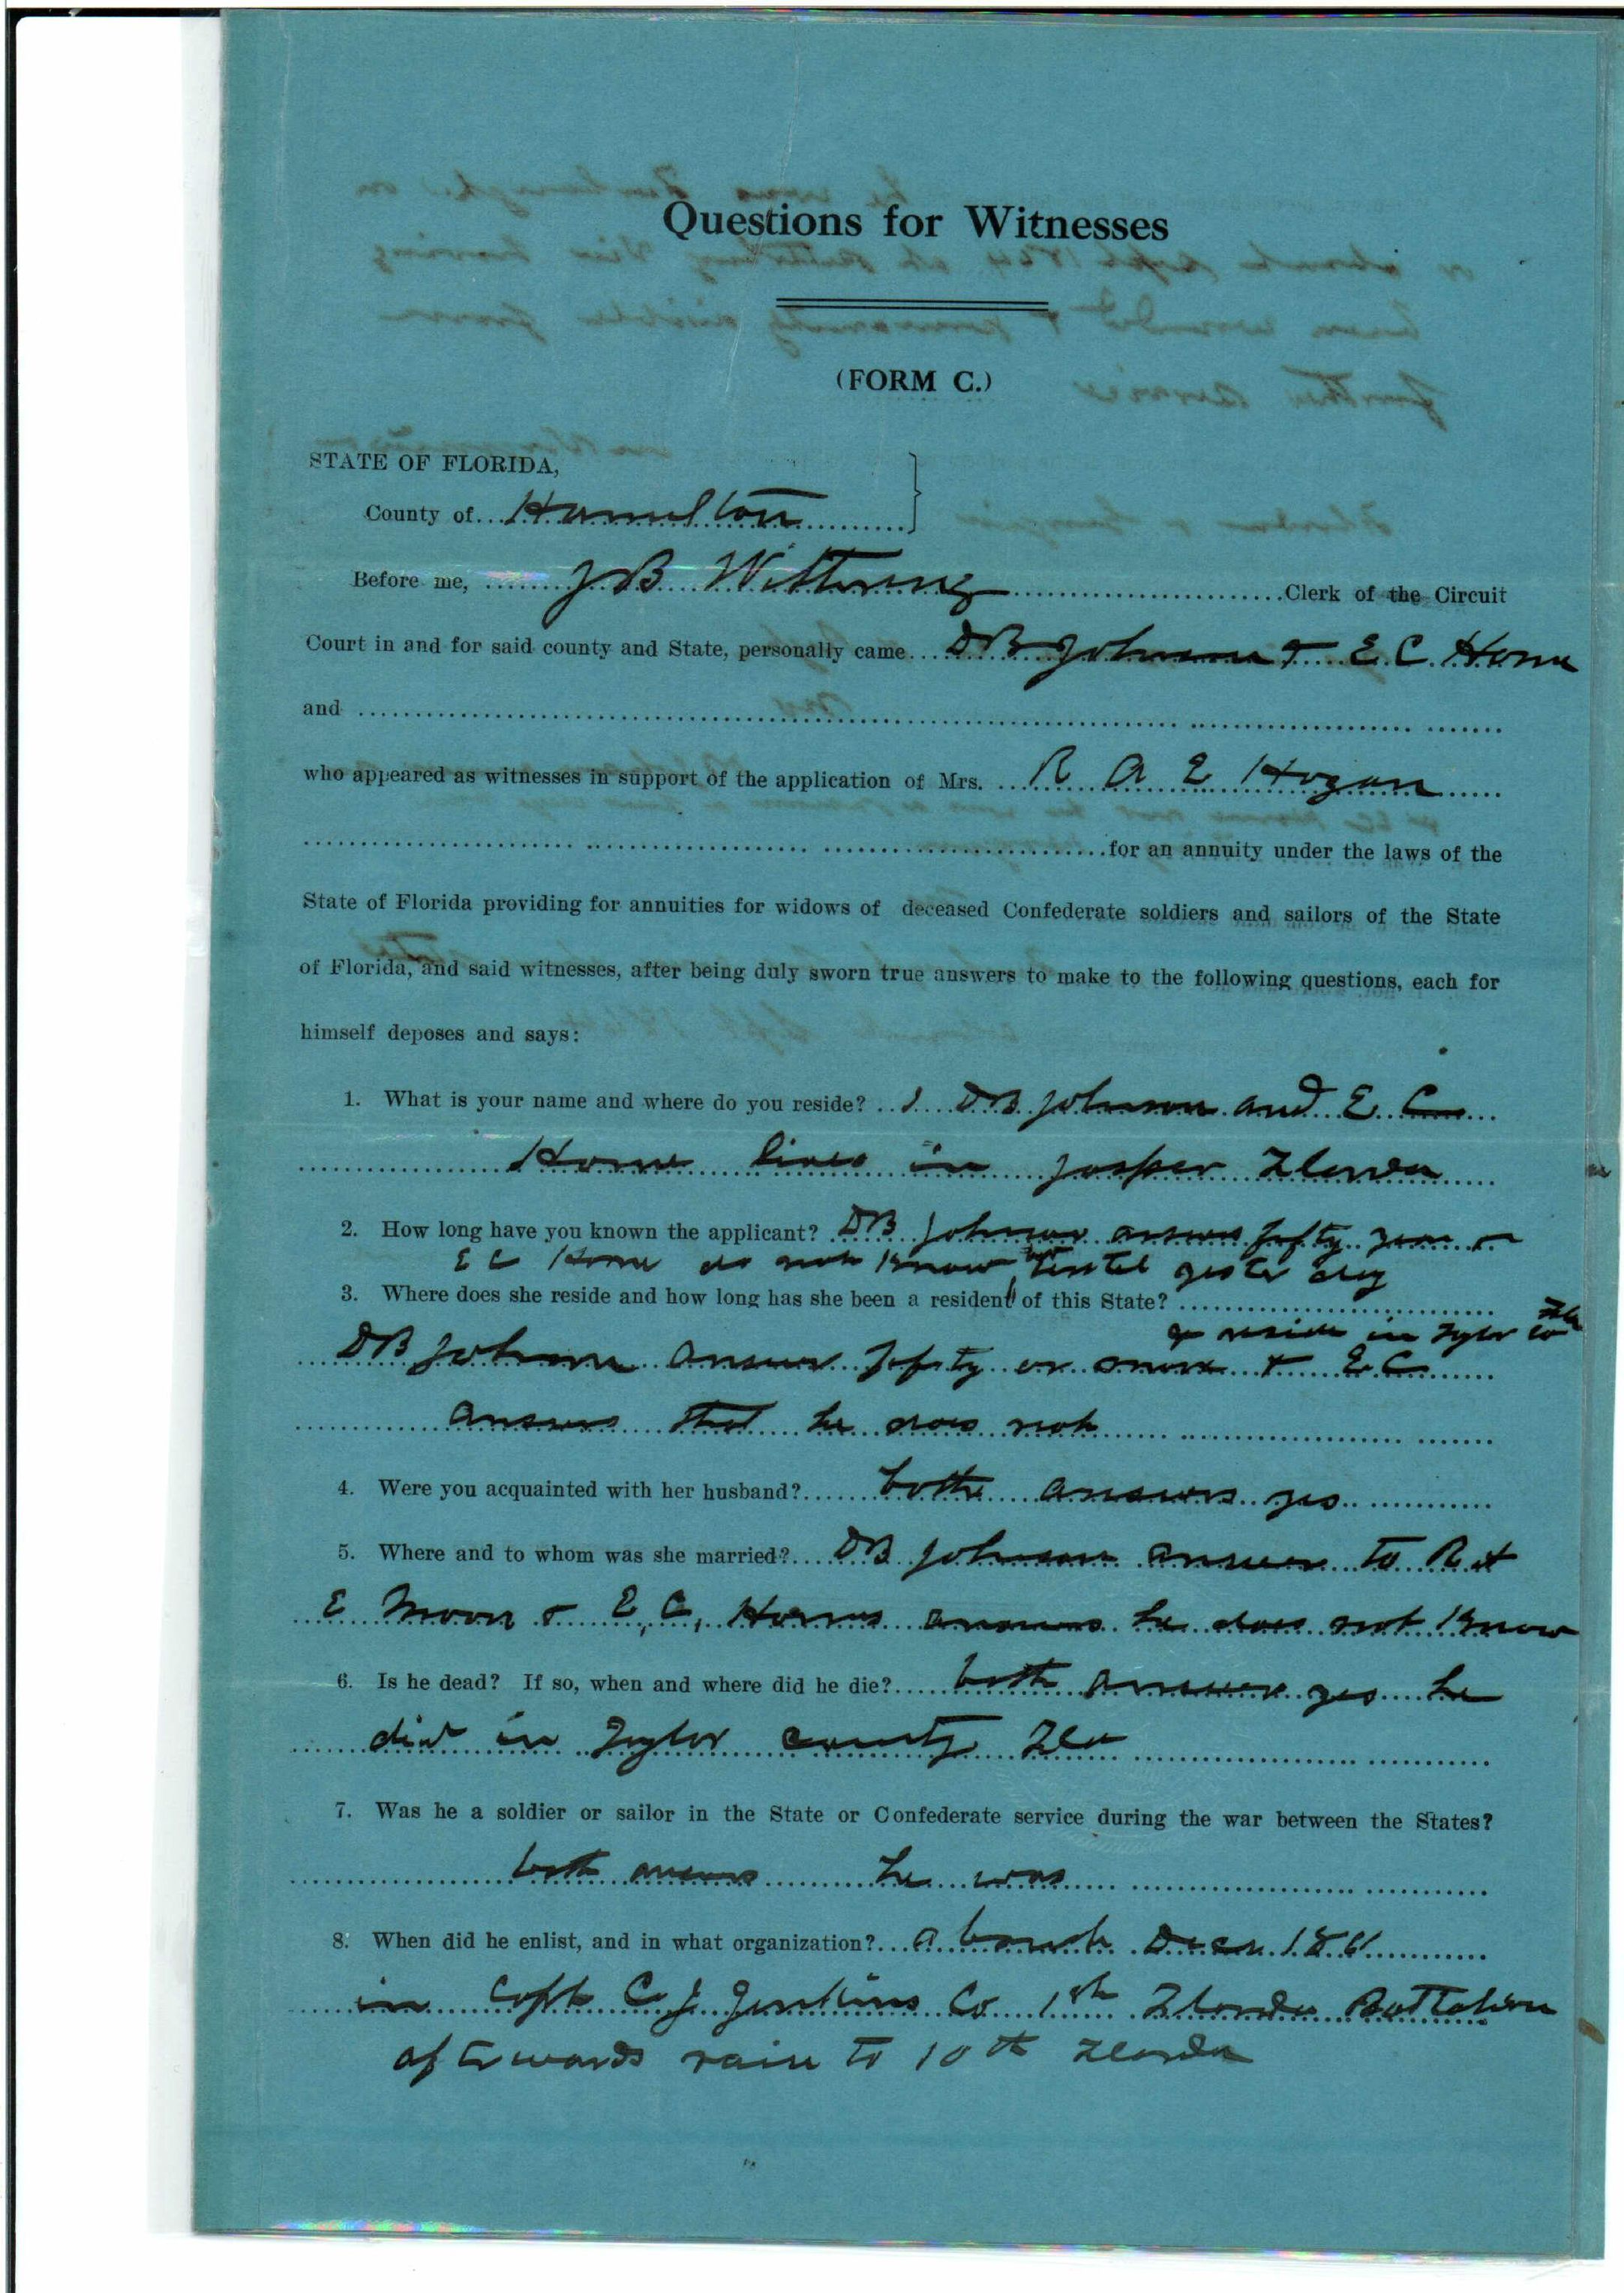 Questions for Witnesses
(FORM C.)
STATE OF FLORIDA,
County of Hamilton
Before me, J B Clerk of the Circuit
Court in and for said county and State, personally came D B Johnson & E. C. Horne
and
who appeared as witnesses in support of the application of Mrs. R A E Hogan
for an annuity under the laws of the
State of Florida providing for annuities for widows of deceased Confederate soldiers and sailors of the State
of Florida, and said witnesses, after being duly sworn true answers to make to the following questions, each for
himself deposes and says:
1. What is your name and where do you reside? D B Johnson and E C
Horne lives in Jasper Florida
2. How long have you known the applicant? D B Johnson answers fifty years
E C Horne do not know until yester day
3. Where does she reside and how long has she been a resident of this State?
reside in Tylor Co Fla
D B Johnson answer fifty or more & E C
answers that he does not
4. Were you acquainted with her husband? both answers yes
5. Where and to whom was she married? D B Johnson answer to R A
E Moon & E, C, Hornes answers he does not know
6. Is he dead? If so, when and where did he die? both answer yes he
died in Taylor county Fla
7. Was he a soldier or sailor in the State or Confederate service during the war between the States?
both answers he was
8. When did he enlist, and in what organization? a bout Decr. 1861
in Capt C J Jenkins Co 1st Florida Battalion
afterwards to 10th Florida